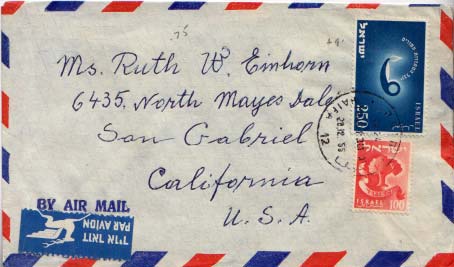 .75
Ms. Ruth W. Einhorn
6435, North Mayes Dale
San Gabriel
California
U. S. A.
BY AIR MAIL
PAR AVION
דואר אויר
ישראל
ISRAEL
250
HAIFA 12
28.12.55
ISRAEL
100